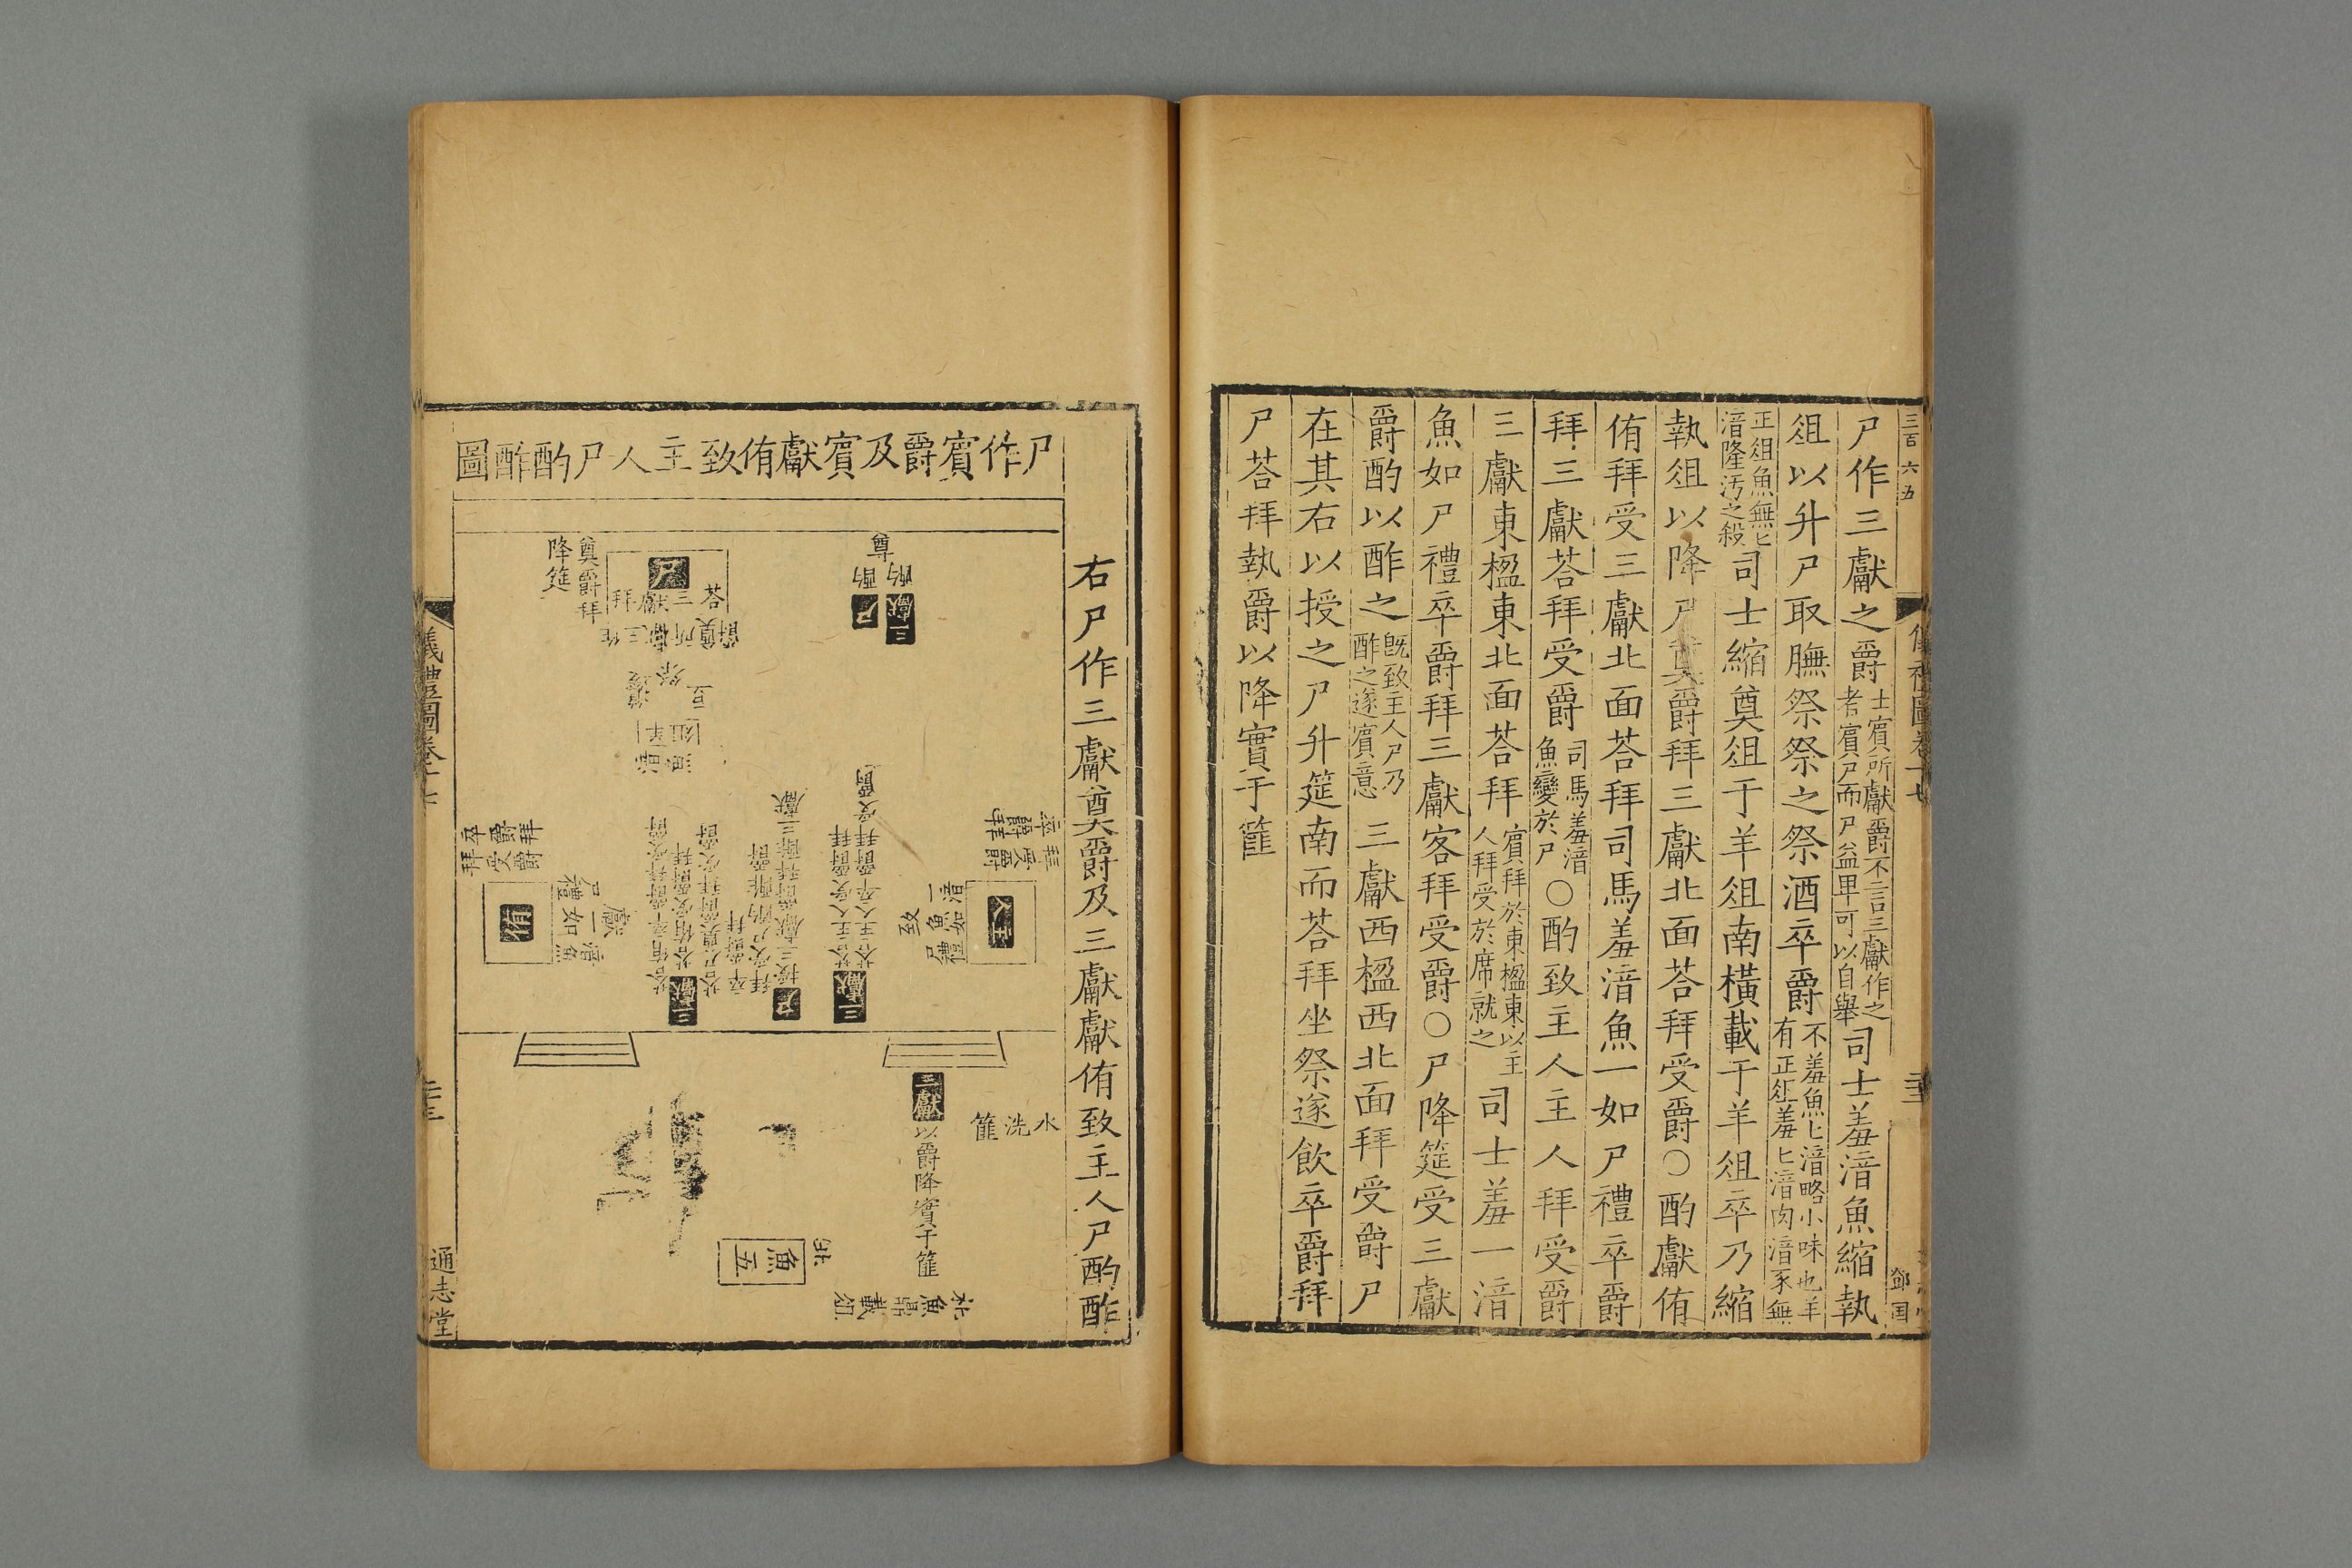 三百六五
尸作三獻之爵士賓所獻爵不言三獻作之者賓尸而尸益卑可以自舉司士羞湆魚縮執
俎以升尸取膴祭祭之祭酒卒爵不羞魚匕湆略小味也羊有正俎羞匕湆肉湆豕無
正俎魚無匕湆隆汚之殺司士縮奠俎于羊俎南橫載于羊俎卒乃縮
執俎以降尸奠爵拜三獻北面荅拜受爵○酌獻侑
侑拜受三獻北面荅拜司馬羞湆魚一如尸禮卒爵
拜三獻荅拜受爵司馬羞湆魚變於尸○酌致主人主人拜受爵
三獻東楹東北面荅拜賓拜於東楹東以主人拜受於席就之司士羞一湆
魚如尸禮卒爵拜三獻荅拜受爵○尸降筵受三獻
爵酌以酢之既致主人尸乃酢之遂賓意三獻西楹西北面拜受爵尸
在其右以授之尸升筵南面荅拜坐祭遂飲卒爵拜
尸荅拜執爵以降實于篚
鄧国
右尸作三獻奠爵及三獻獻侑致主人尸酌酢
尸作賓爵及賓獻侑致主人尸酌酢圖
尊
三獻酌
尸酌
尸
荅三獻拜
奠爵拜
降筵
羊俎
主人
拜受爵
卒爵拜
湆魚一如尸禮
致
三獻
尸
三獻
侑
拜受爵
卒爵拜
水洗篚
三獻以爵降實于篚
魚五
儀禮圖卷十七
通志堂